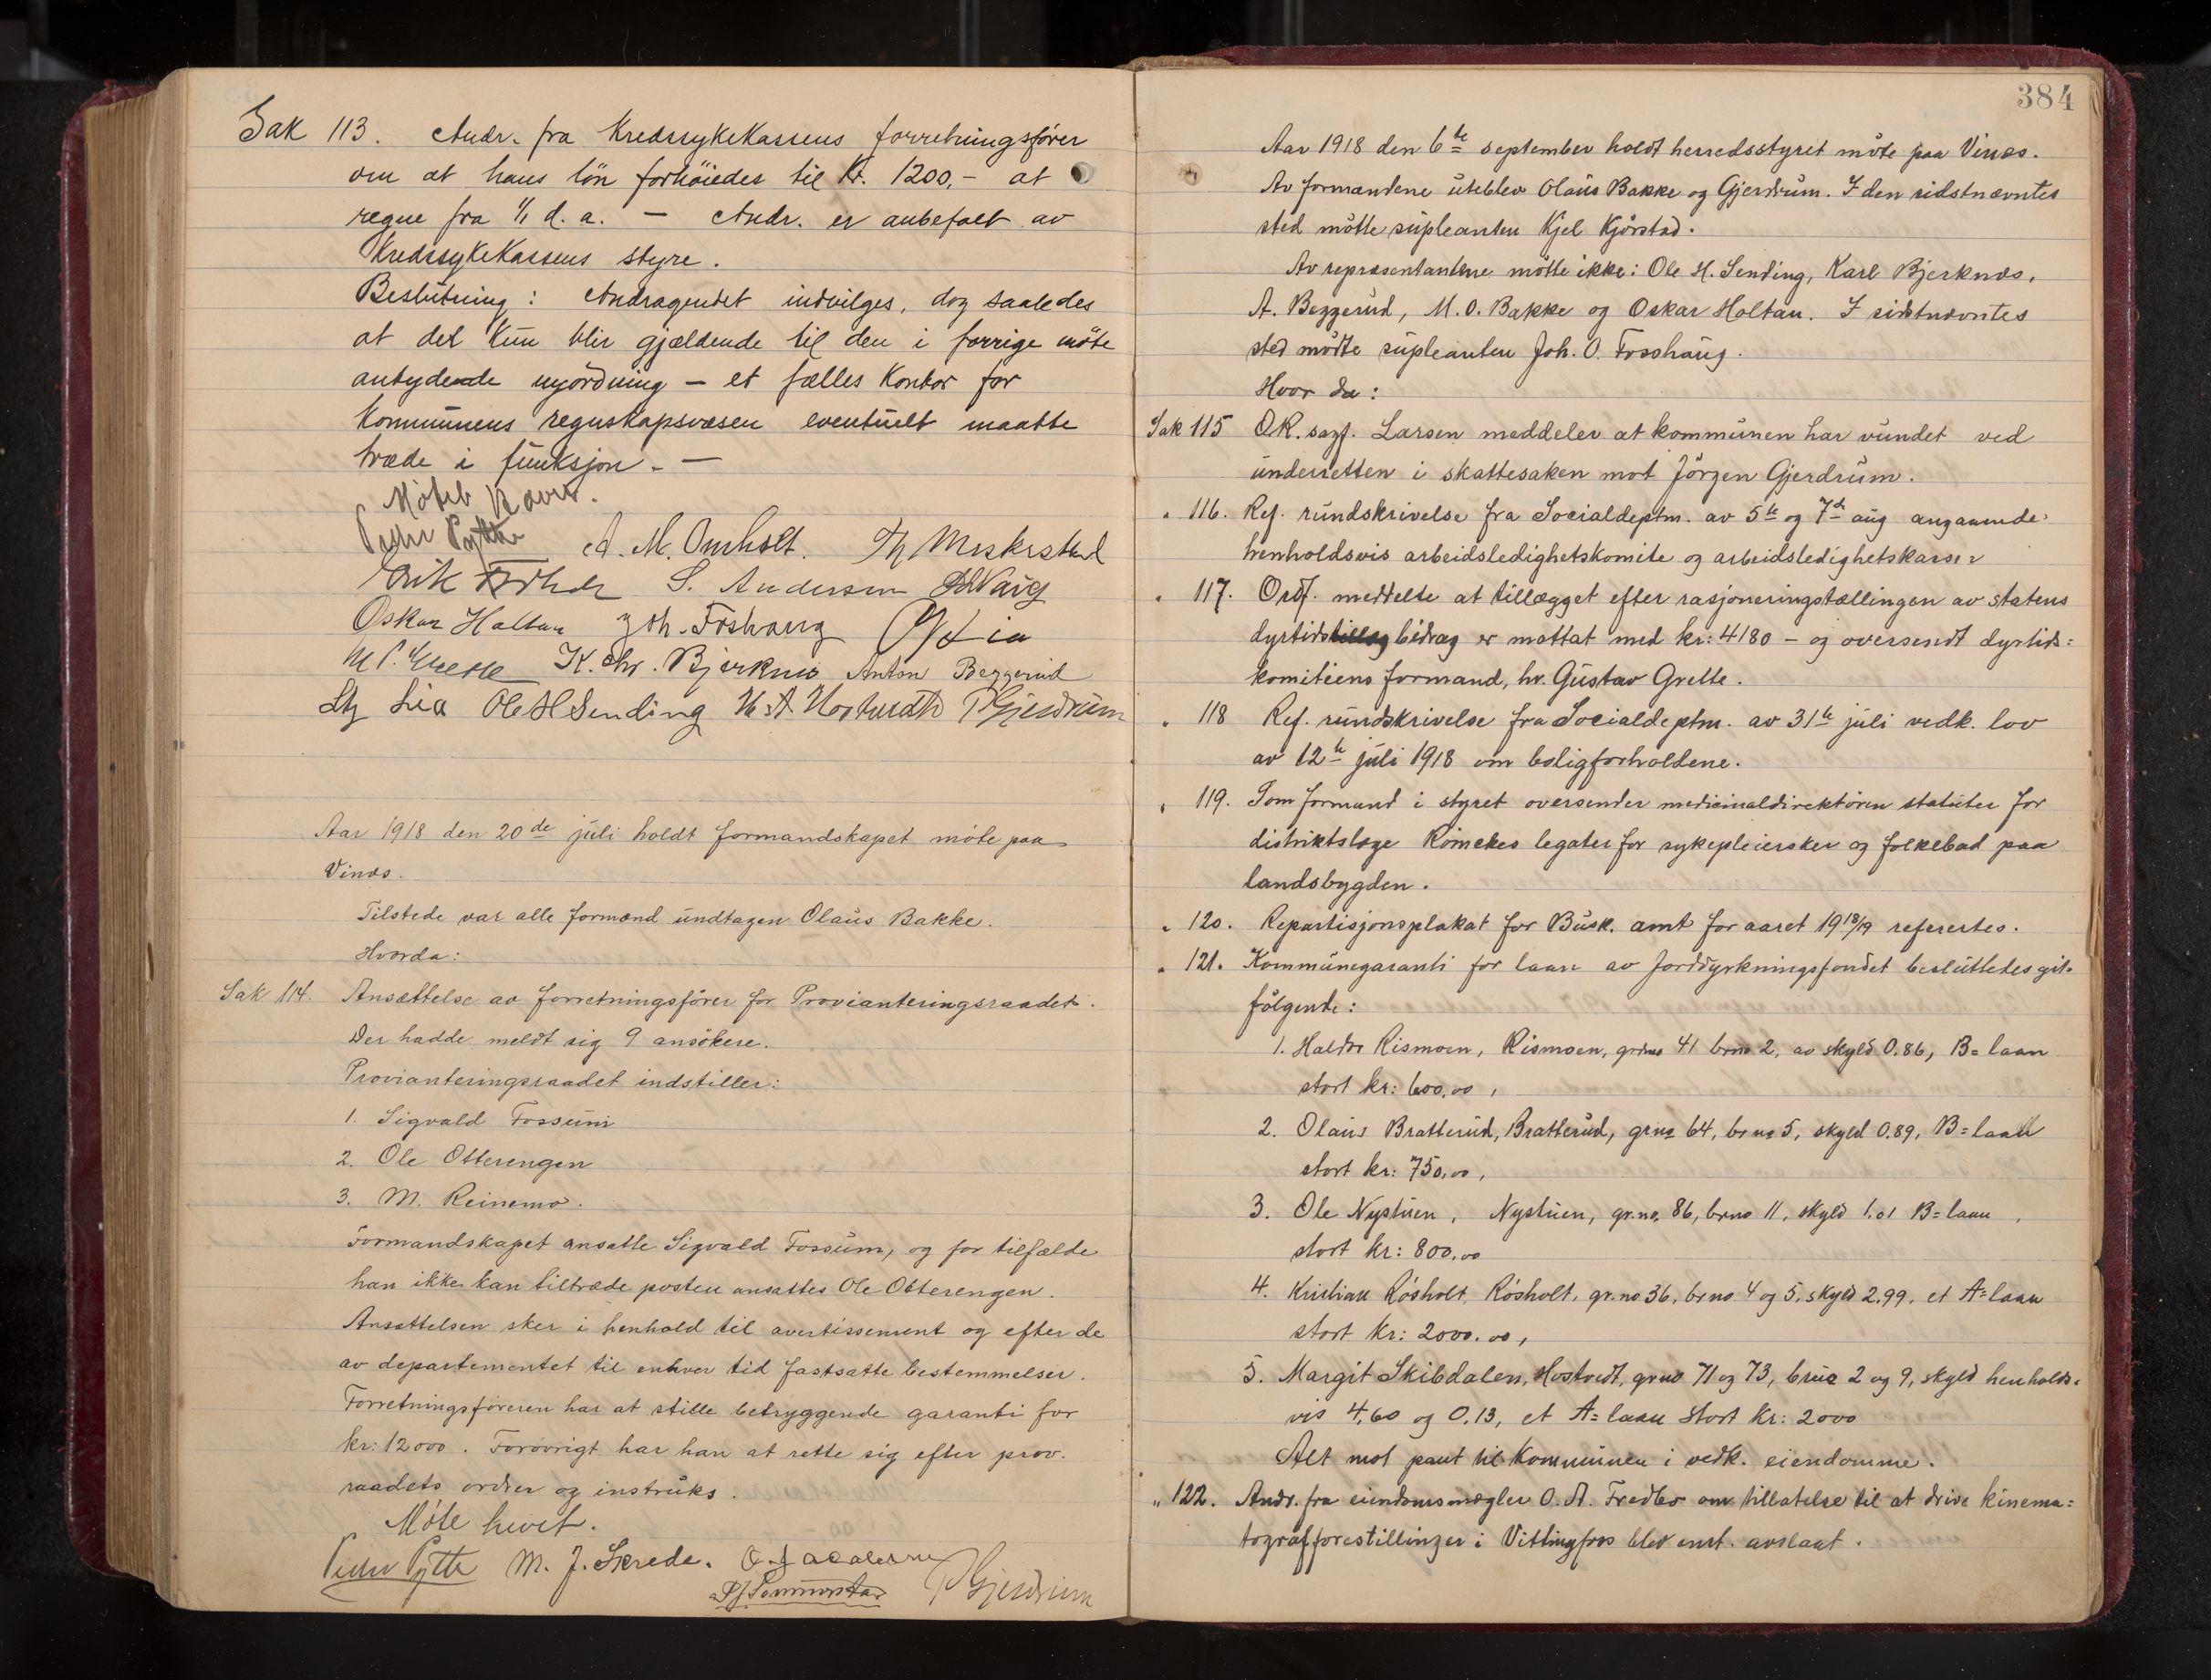 Sak 113. Andr. fra Kredssykekassens forretningsfører
om at hans lön forhöiedes til Kr. 1200,- at
regne fra 1/1 d. a. — Andr. er anbefalt av
Kredssykekassens styre.
Beslutning: Andragendet indvilges, dog saaledes
at det kun blir gjældende til den i forrige möte
antydende nyordning – et fælles kontor for
kommunens regnskapsvæsen eventuelt maatte
træde i funksjon. —
Møtet hævet.
Peder Pytte A. M. Omholt.
S. Andersen
Oskar Holtan Joh. Foshaug Lia
K. Chr. Bjerknæs Anton Beggerud
Lia Ole H Sending PGjerdrum
Aar 1918 den 20de juli holdt formandskapet möte paa
Vinæs.
Tilstede var alle formænd undtagen Olaus Bakke.
Hvorda:
Sak 114. Ansættelse av forretningsförer for Provianteringsraadet.
Der hadde meldt sig 9 ansökere.
Provianteringsraadet indstiller:
1. Sigvald Fossum
2. Ole Otterengen
3. M. Reinemo.
Formandskapet ansatte Sigvald Fossum, og for tilfælde
han ikke kan tiltræde posten ansattes Ole Otterengen.
Ansættelsen sker i henhold til avertissement og efter de
av departementet til enhver tid fastsatte bestemmelser.
Forretningsføreren har at stille betryggende garanti for
kr: 12000. Forövrigt har han at rette sig efter prov.
raadets ordrer og instruks.
Möte hevet.
Peder Pytte M. J. Skrede.
PGjerdrum
384
Aar 1918 den 6te september holdt herredsstyret möte paa Vinæs.
Av formændene uteblev Olaus Bakke og Gjerdrum. I den sidstnævntes
sted mötte supleanten Kjel Kjörstad.
Av repræsentantene mötte ikke: Ole H. Sending, Karl Bjerknæs,
A. Beggerud, M. O. Bakke og Oskar Holtan. I sidstnævntes
sted mötte supleanten Joh. O. Fosshaug.
Hvor da:
Sak 115 O.R. sagf. Larsen meddeler at kommunen har vundet ved
underretten i skattesaken mot Jörgen Gjerdrum.
" 116. Ref. rundskrivelse fra Socialdeptm. av 5te og 7de aug angaaende
henholdsvis arbeidsledighetskomite og arbeidsledighetskasser
" 117. Ordf. meddelte at tillægget efter rasjoneringstællingen av statens
dyrtidstillæg bidrag er mottat med kr: 4180 – og oversendt dyrtids=
komiteens formand, hr. Gustav Grette.
" 118 Ref. rundskrivelse fra Socialdeptm. av 31te juli vedk. lov
av 12te juli 1918 om boligforholdene.
" 119. Som formand i styret oversender medicinaldirektören statuter for
distriktslæge Römckes legater for sykepleiersker og folkebad paa
landsbygden.
" 120. Repartisjonsplakat for Busk. amt for aaret 1918/19 refereres.
" 121. Kommunegaranti for laan av Jorddyrkningsfondet besluttedes git
fölgende:
1. Haldor Rismoen, Rismoen, grno 41 brno 2, av skyld 0.86, B=laan
stort kr: 600,00,
2. Olaus Bratterud, Bratterud, grno 64, brno 5, skyld 0.89, B=laan
stort kr: 750,00,
3. Ole Nystuen, Nystuen, gr.no. 86, brno 11, skyld 1.01 B=laan,
stort kr: 800.00
4. Kristian Rösholt, Rösholt, gr.no 36, brno 4 og 5, skyld 2.99. et A=laan
stort kr: 2000.00,
5. Margit Skibdalen, Hostvedt, grno 71 og 73, brno 2 og 9, skyld henholds=
vis 4,60 og 0.13, et A=laan stort kr: 2000
Alt mot pant til kommunen i vedk. eiendomme.
" 122. Andr. fra eiendomsmægler O. A. Fredbo om tillatelse til at drive kinema=
tografforestillinger i Vittingfos blev enst. avslaat.